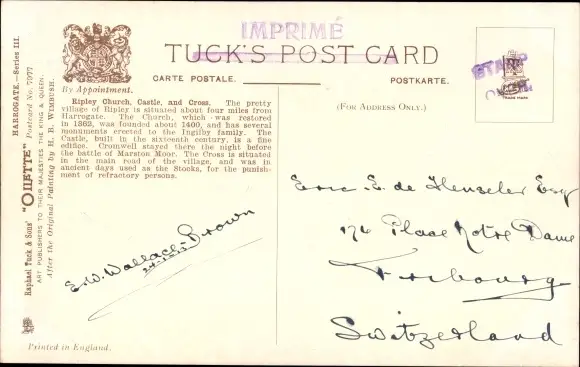 IMPRIMÉ
TUCK'S POST CARD
CARTE POSTALE.
POSTKARTE.
By Appointment.
(FOR ADDRESS ONLY.)
Ripley Church, Castle, and Cross. The pretty
village of Ripley is situated about four miles from
Harrogate. The Church, which was restored
in 1862, was founded about 1400, and has several
monuments erected to the Ingilby family. The
Castle, built in the sixteenth century, is a fine
edifice. Cromwell stayed there the night before
the battle of Marston Moor. The Cross is situated
in the main road of the village, and was in
ancient days used as the Stocks, for the punish-
ment of refractory persons.
HARROGATE.—Series III.
Raphael Tuck & Sons' "OILETTE" Postcard No. 7077
ART PUBLISHERS TO THEIR MAJESTIES THE KING & QUEEN.
After the Original Painting by H. B. WIMBUSH.
E.W. Wallach-Brown
Eric E. de Henseler Esq
174 Place Notre Dame
Fribourg
Switzerland
Printed in England.